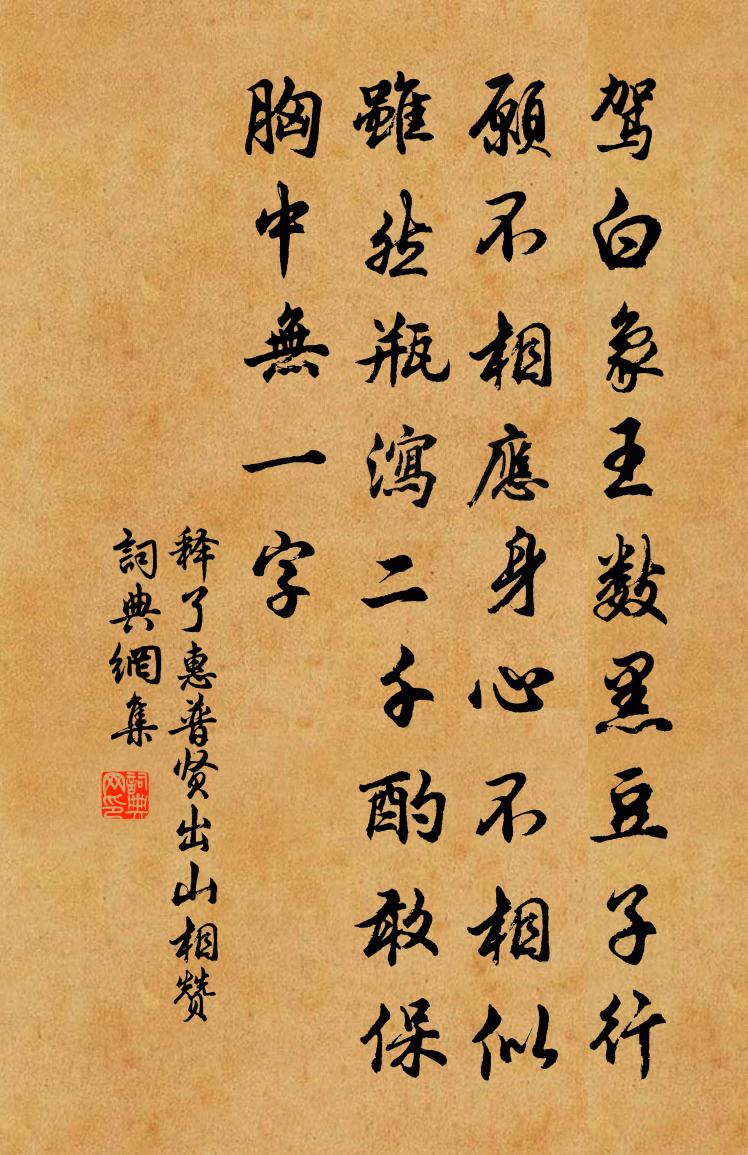 驾白象王数黑豆子行
願不相應身心不相似
雖然瓶瀉二千酌敢保
胸中無一字
释了惠普贤出山相赞
詞典網集
詞典网印